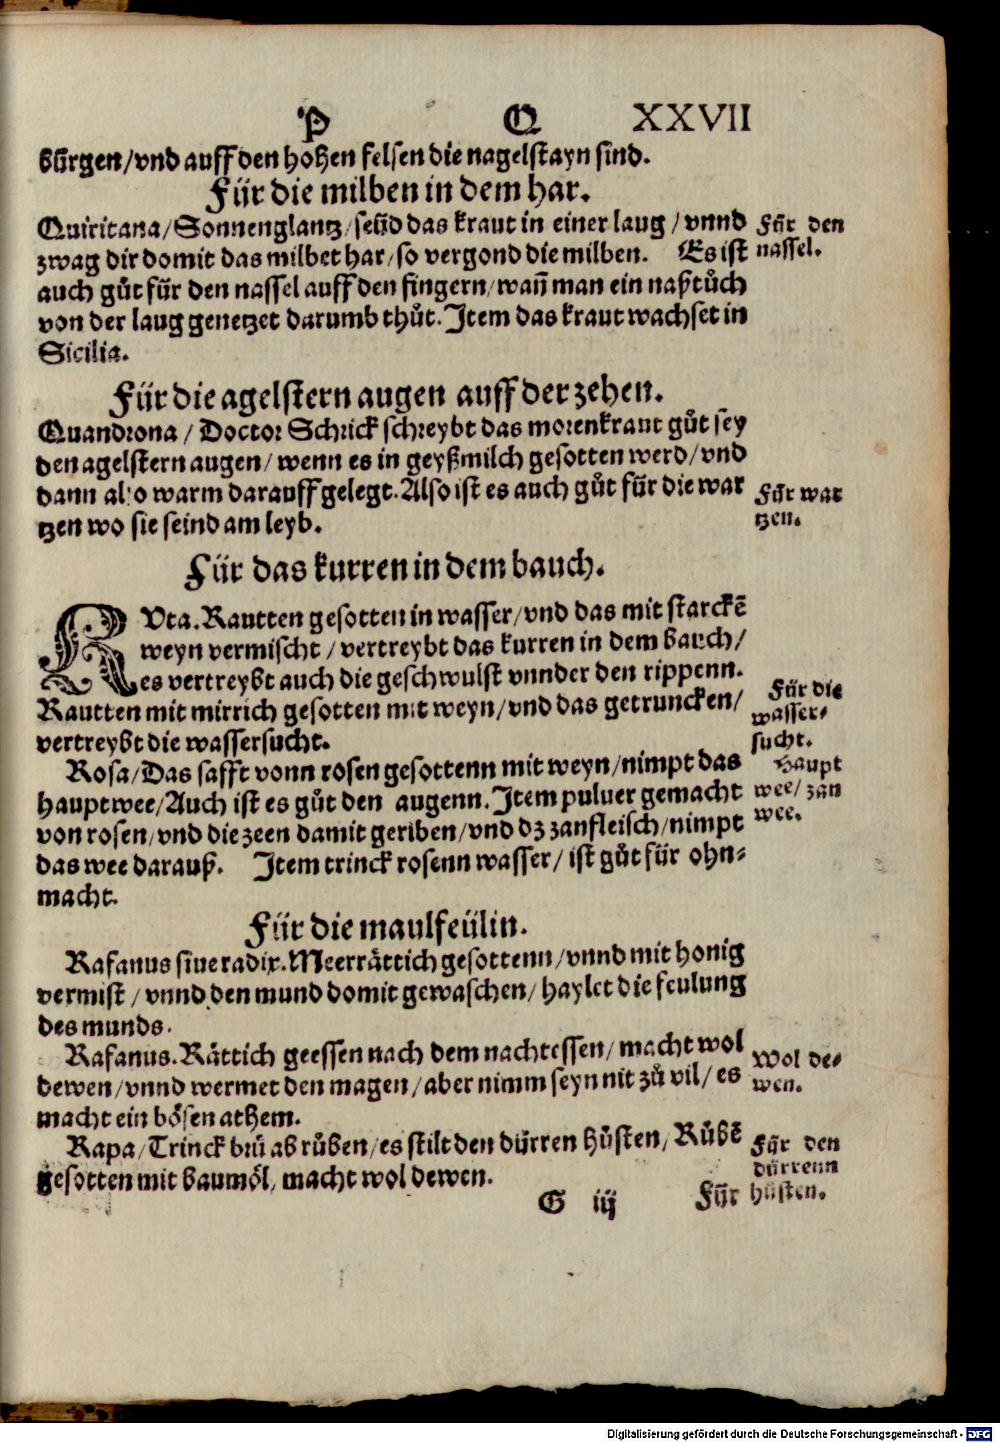 P Q XXVII
bürgen/vnd auff den hohen felsen die nagelstayn sind.
Für die milben in dem har.
Quiritana/Sonnenglantz/seüd das kraut in einer laug/vnnd
zwag dir domit das milbet har/so vergond die milben. Es ist
auch gůt für den nassel auff den fingern/wañ man ein naßtůch
von der laug genetzet darumb thůt. Item das kraut wachset in
Sicilia.
Für den
nassel.
Für die agelstern augen auff der zehen.
Quandrona/Doctor Schrick schreybt das morenkraut gůt sey
den agelstern augen/wenn es in geyßmilch gesotten werd/vnd
dann also warm darauff gelegt. Also ist es auch gůt für die war
tzen wo sie seind am leyb.
Für war
tzen.
Für das kurren in dem bauch.
RVta. Rautten gesotten in wasser/vnd das mit starckē
weyn vermischt/vertreybt das kurren in dem bauch/
es vertreybt auch die geschwulst vnnder den rippenn.
Rautten mit mirrich gesotten mit weyn/vnd das getruncken/
vertreybt die wassersucht.
Für die
wasser-
sucht.
Rosa/Das safft vonn rosen gesottenn mit weyn/nimpt das
hauptwee/Auch ist es gůt den augenn. Item puluer gemacht
von rosen/vnd die zeen damit geriben/vnd dz zanfleisch/nimpt
das wee darauß. Item trinck rosenn wasser/ist gůt für ohn-
macht.
Haupt
wee/zan
wee.
Für die maulfeülin.
Rafanus siue radix. Meerrättich gesottenn/vnnd mit honig
vermist/vnnd den mund domit gewaschen/haylet die feulung
des munds.
Rafanus. Rättich geessen nach dem nachtessen/macht wol
dewen/vnnd wermet den magen/aber nimm seyn nit zů vil/es
macht ein bösen athem.
Wol de-
wen.
Rapa/Trinck brü ab růben/es stilt den dürren hůsten/Růbē
gesotten mit baumöl/macht wol dewen.
Für den
dürrenn
hůsten.
G iij Für
Digitalisierung gefördert durch die Deutsche Forschungsgemeinschaft - DFG